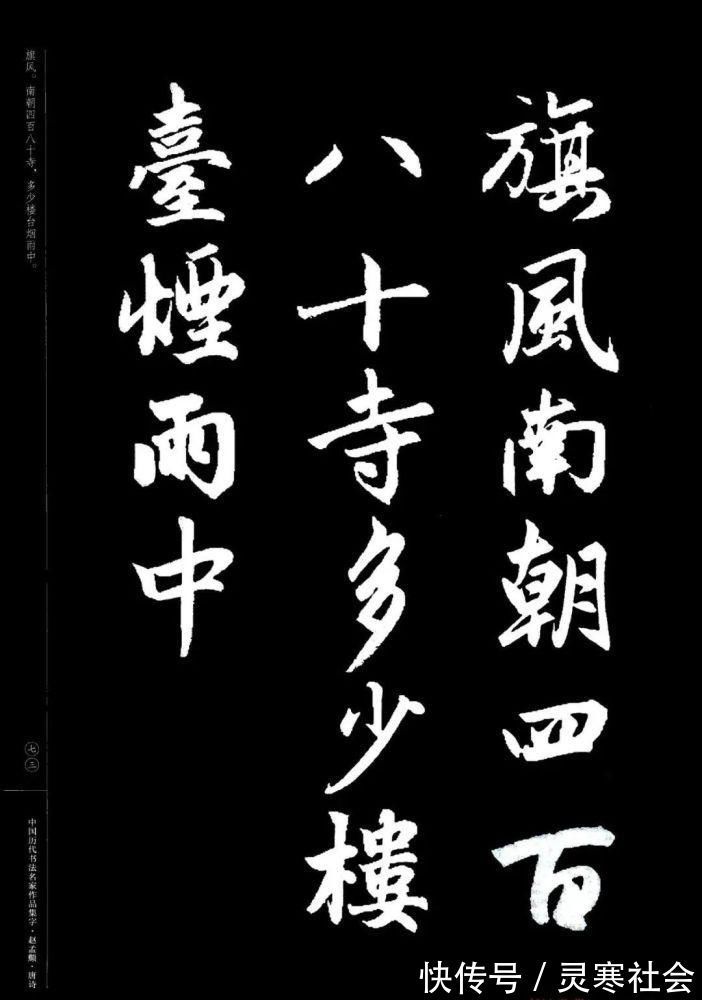 旗風南朝四百
八十寺多少樓
臺煙雨中
旗风。南朝四百八十寺，多少楼台烟雨中。
七三
中国历代书法名家作品集字·赵孟頫·唐诗
快传号／灵寒社会